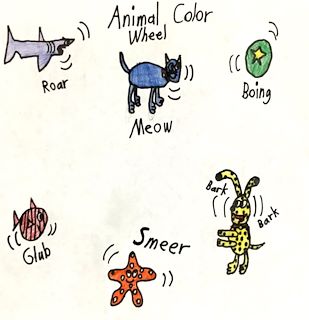 Animal Color
Wheel
Roar
Meow
Boing
Glub
Smeer
Bark
Bark